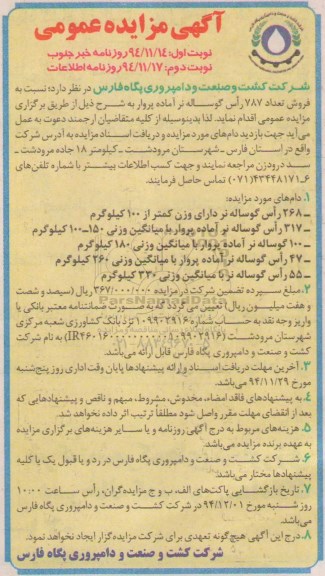 آگهی مزایده عمومی
نوبت اول: ۹۴/۱۱/۱۴ روزنامه خبر جنوب
نوبت دوم: ۹۴/۱۱/۱۷ روزنامه اطلاعات
شرکت کشت و صنعت و دامپروری پگاه فارس در نظر دارد؛ نسبت به
فروش تعداد ۷۸۷ رأس گوساله نر آماده پروار به شرح ذیل از طریق برگزاری
مزایده عمومی اقدام نماید. لذا بدینوسیله از کلیه متقاضیان ارجمند دعوت به عمل
می‌آید جهت بازدید دام‌های مورد مزایده و دریافت اسناد مزایده به آدرس شرکت
واقع در استان فارس ـ شهرستان مرودشت ـ کیلومتر ۱۸ جاده مرودشت ـ
سد درودزن مراجعه نمایند و جهت کسب اطلاعات بیشتر با شماره تلفن‌های
۶ـ۴۳۴۴۸۱۷۱(۰۷۱) تماس حاصل فرمایند.
۱. دام‌های مورد مزایده:
ـ ۲۶۸ رأس گوساله نر دارای وزن کمتر از ۱۰۰ کیلوگرم
ـ ۳۱۷ رأس گوساله نر آماده پروار با میانگین وزنی ۱۵۰ـ۱۰۰ کیلوگرم
ـ ۱۰۰ گوساله نر آماده پروار با میانگین وزنی ۱۸۰ کیلوگرم
ـ ۴۷ رأس گوساله نر آماده پروار با میانگین وزنی ۲۶۰ کیلوگرم
ـ ۵۵ رأس گوساله نر با میانگین وزنی ۳۳۰ کیلوگرم
۲. مبلغ سپرده تضمین شرکت در مزایده ۳۶۷/۰۰۰/۰۰۰ ریال (سیصد و شصت
و هفت میلیون ریال) تعیین می‌گردد که به صورت ضمانتنامه معتبر بانکی یا
واریز وجه نقد به حساب شماره ۱۰۹۹۰۲۹۱۶ نزد بانک کشاورزی شعبه مرکزی
شهرستان مرودشت به نام شرکت
کشت و صنعت و دامپروری پگاه فارس قابل ارائه می‌باشد.
۳. آخرین مهلت دریافت اسناد و ارائه پیشنهادها پایان وقت اداری روز پنج‌شنبه
مورخ ۹۴/۱۱/۲۹ می‌باشد.
۴. به پیشنهادهای فاقد امضاء، مخدوش، مشروط، مبهم و ناقص و پیشنهادهایی که
بعد از انقضای مهلت مقرر واصل شود مطلقاً ترتیب اثر داده نخواهد شد.
۵. هزینه‌های مربوط به درج آگهی روزنامه و یا سایر هزینه‌های برگزاری مزایده
به عهده برنده مزایده می‌باشد.
۶. شرکت کشت و صنعت و دامپروری پگاه فارس در رد و یا قبول یک یا کلیه
پیشنهادها مختار می‌باشد.
۷. تاریخ بازگشایی پاکت‌های الف، ب و ج مزایده‌گران، رأس ساعت ۱۰:۰۰
روز شنبه مورخ ۹۴/۱۲/۰۱ در شرکت کشت و صنعت و دامپروری پگاه فارس
می‌باشد.
۸. درج این آگهی هیچ‌گونه تعهدی برای شرکت مزایده‌گزار ایجاد نخواهد نمود.
شرکت کشت و صنعت و دامپروری پگاه فارس